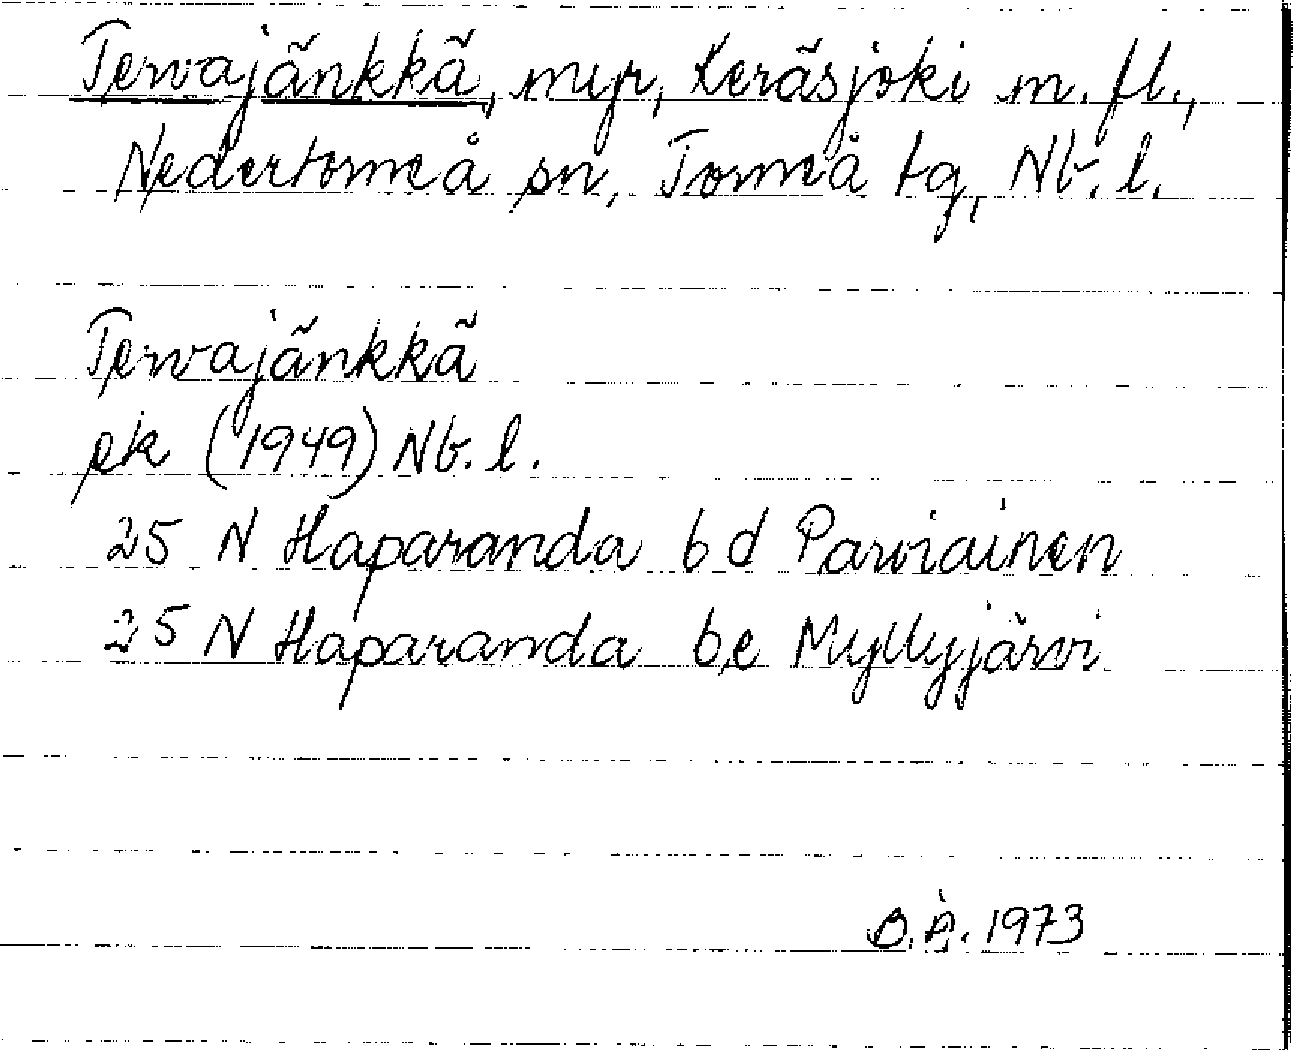 Tervajänkkä, myr, Keräsjoki m. fl.,
Nedertorneå sn, Torneå tg, Nb. l.
Tervajänkkä
ek (1949) Nb. l.
25 N Haparanda 6d Parviainen
25 N Haparanda 6e Myllyjärvi
B.Å. 1973